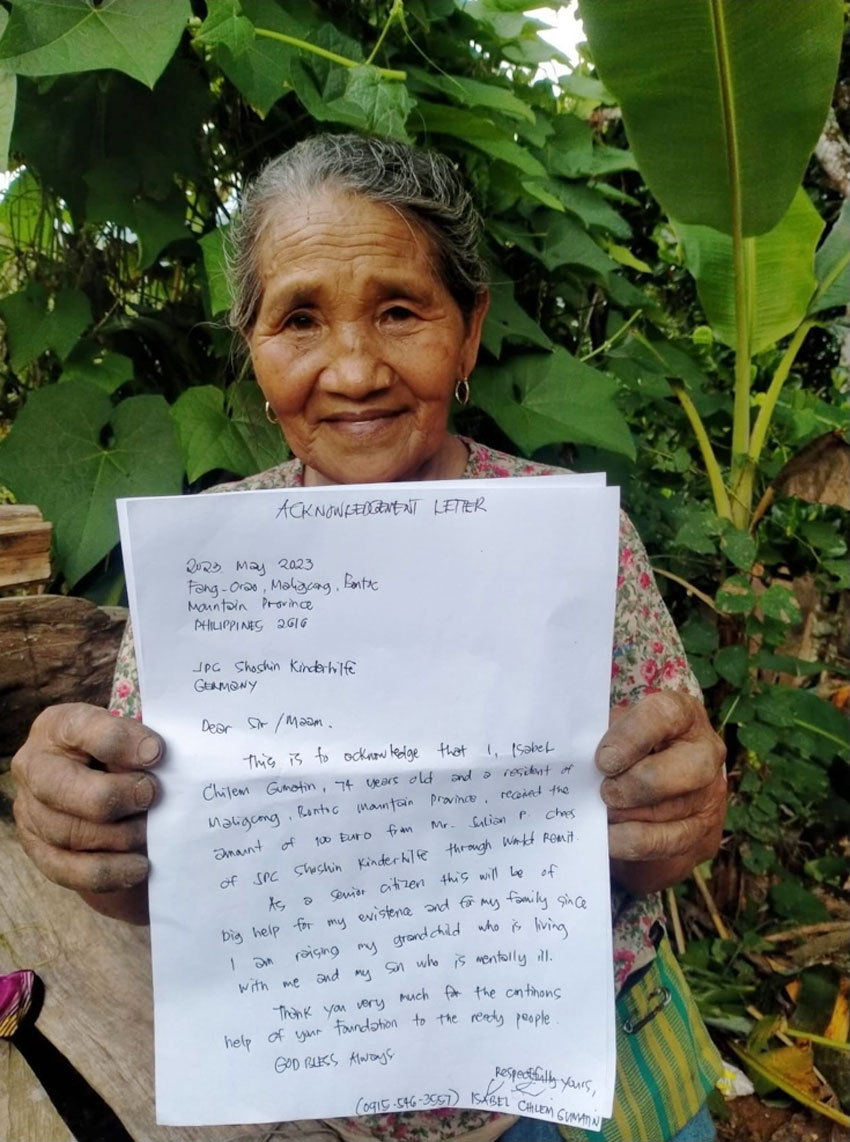 ACKNOWLEDGEMENT LETTER
2023 May 2023
Fang-Orao, Maligcong, Bontoc
Mountain Province
PHILIPPINES 2616
JPC Shoshin Kinderhilfe
GERMANY
Dear Sir/Maam.
This is to acknowledge that I, Isabel
Chilem Gumatin, 74 years old and a resident of
Maligcong, Bontoc Mountain Province, received the
amount of 100 Euro from Mr. Julian P. Ches
of JPC Shoshin Kinderhilfe through World Remit.
As a senior citizen this will be of
big help for my existence and for my family since
I am raising my grandchild who is living
with me and my son who is mentally ill.
Thank you very much for the continous
help of your foundation to the needy people.
GOD BLESS Always
Respectfully yours,
(0915-546-3557) ISABEL CHILEM GUMATIN